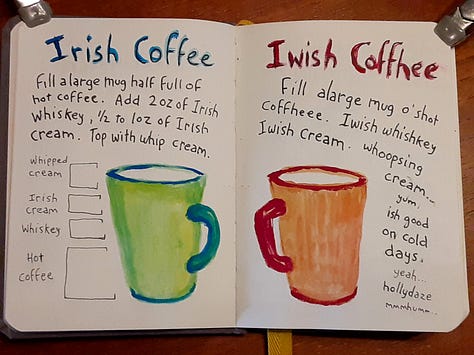 Irish Coffee
Fill a large mug half full of
hot coffee. Add 2oz of Irish
Whiskey, ½ to 1oz of Irish
cream. Top with whip cream.
Whipped
cream
Irish
cream
Whiskey
Hot
coffee
Iwish Coffhee
Fill alarge mug o'shot
Coffheee. Iwish whishkey
Iwish cream. whoopsing
cream...
yum,
ish good
on cold
days.
yeah...
hollydaze
mmmhumm..